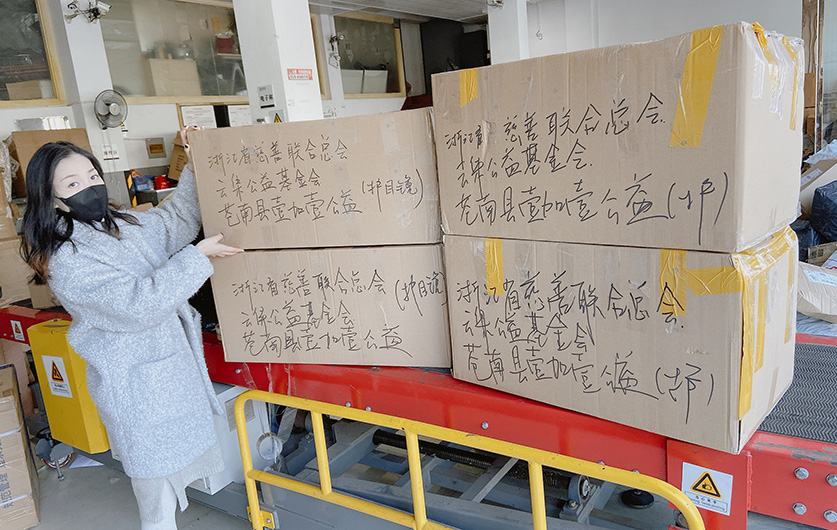 浙江省慈善联合总会
云集公益基金会
苍南县壹加壹公益(护目镜)
浙江省慈善联合总会.
云集公益基金会.
苍南县壹加壹公益(护)
浙江省慈善联合总会(护目镜
云集公益基金会
苍南县壹加壹公益
浙江省慈善联合总会.
云集公益基金会
苍南县壹加壹公益(护)